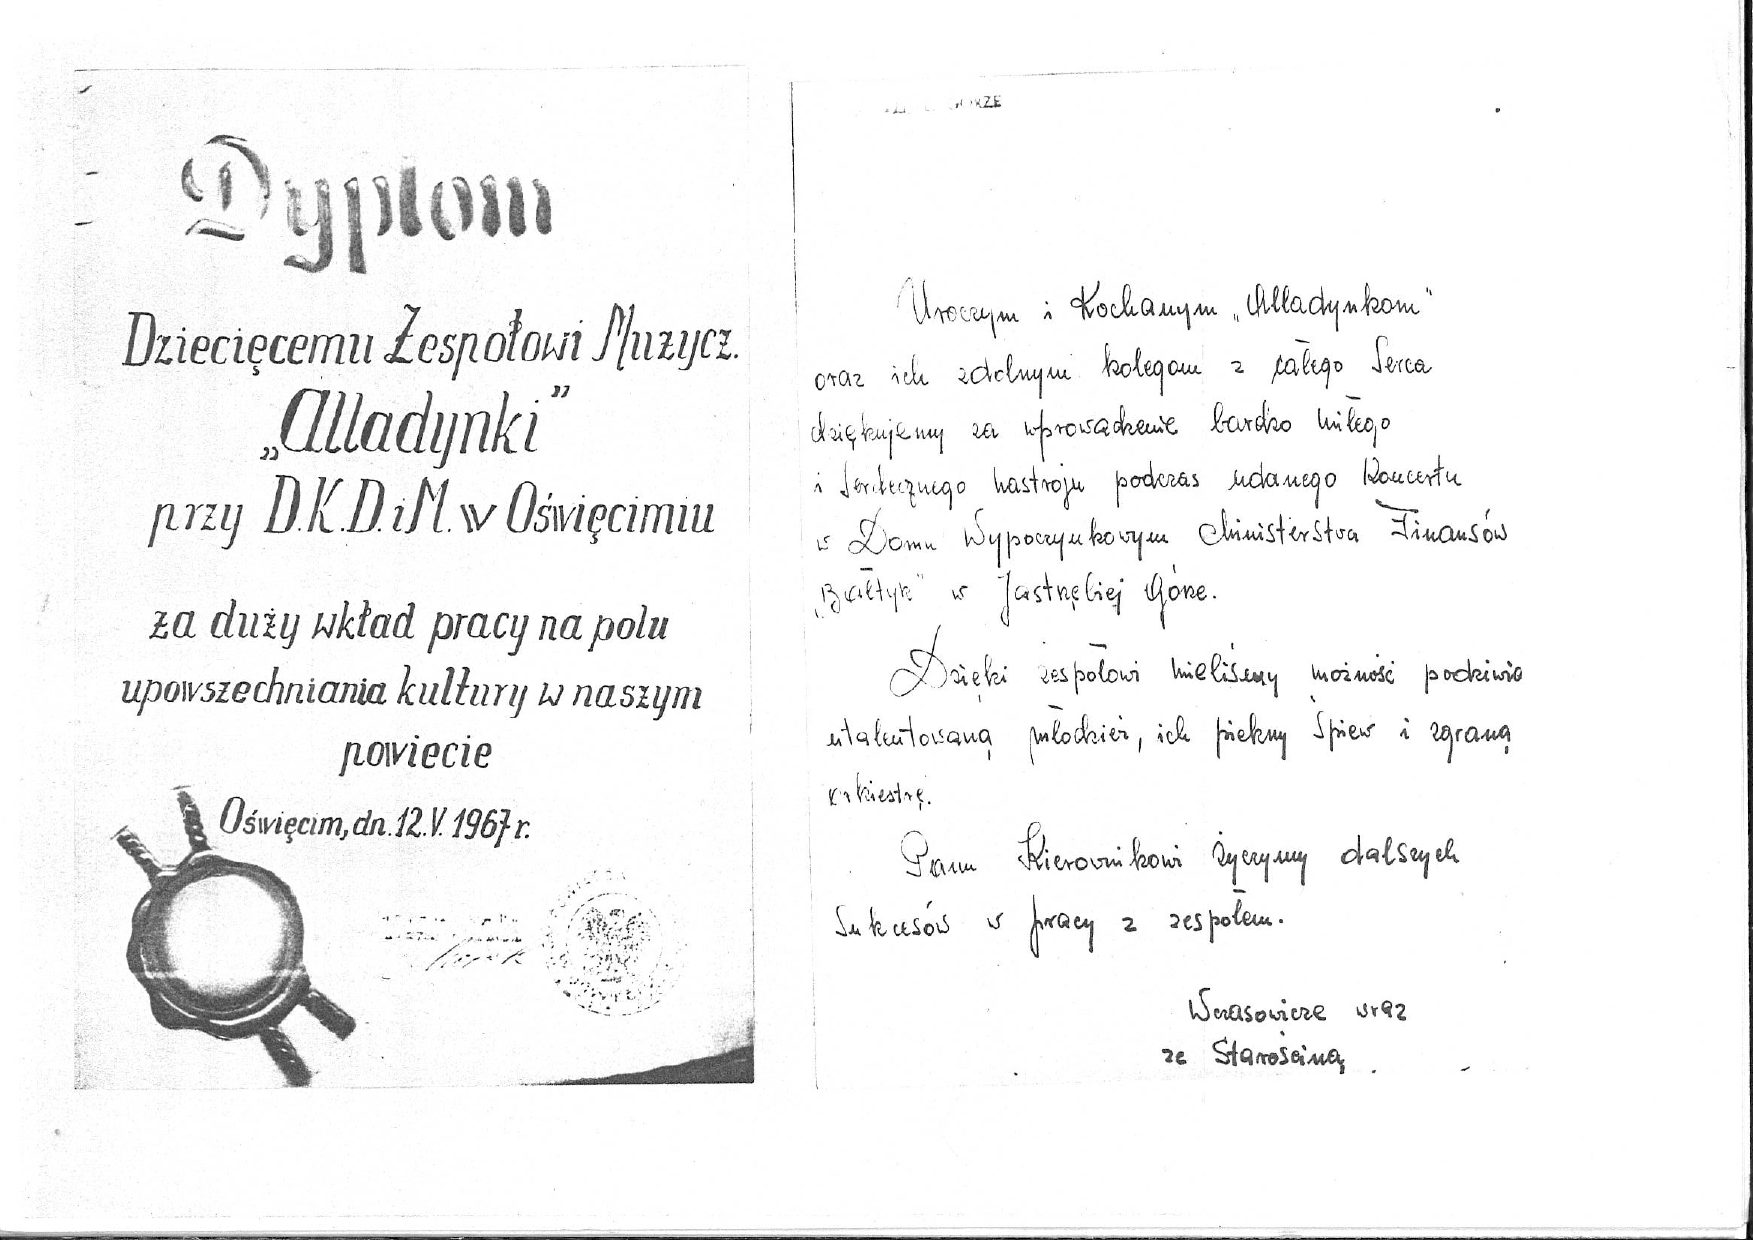 Dyplom
Dziecięcemu Zespołowi Muzycz.
„Alladynki”
przy D.K.D.iM. w Oświęcimiu
za duży wkład pracy na polu
upowszechniania kultury w naszym
powiecie
Oświęcim, dn. 12.V. 1967 r.
GÓRZE
Uroczym i Kochanym „Alladynkom”
oraz ich zdolnym kolegom z całego Serca
dziękujemy za wprowadzenie bardzo miłego
i Serdecznego nastroju podczas udanego Koncertu
w Domu Wypoczynkowym Ministerstwa Finansów
„Bałtyk” w Jastrzębiej Górze.
Dzięki zespołowi mieliśmy możność podziwia
utalentowaną młodzież, ich piękny Śpiew i zgraną
orkiestrę.
Panu Kierownikowi życzymy dalszych
Sukcesów w pracy z zespołem.
Wczasowicze wraz
ze Starościną